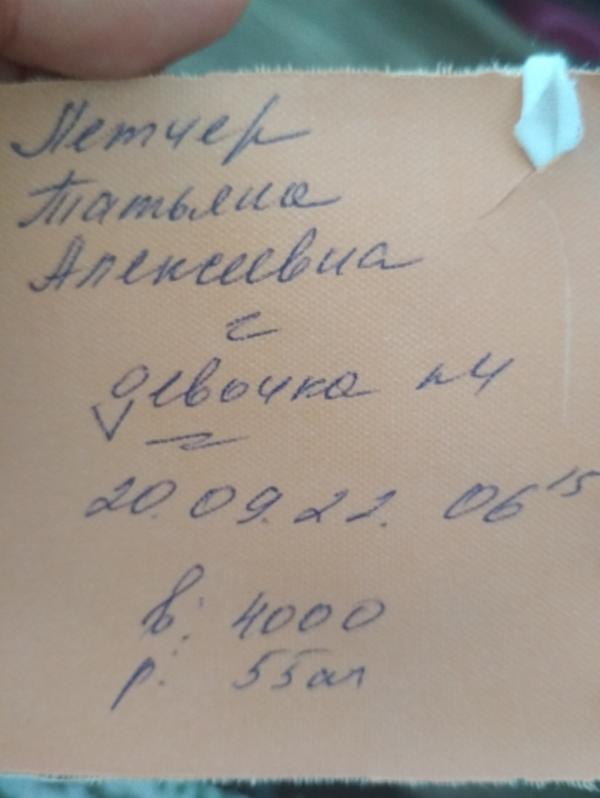 Петчер
Татьяна
Алексеевна
с
девочка п4
20.09.22. 06 15
в: 4000
р: 55см